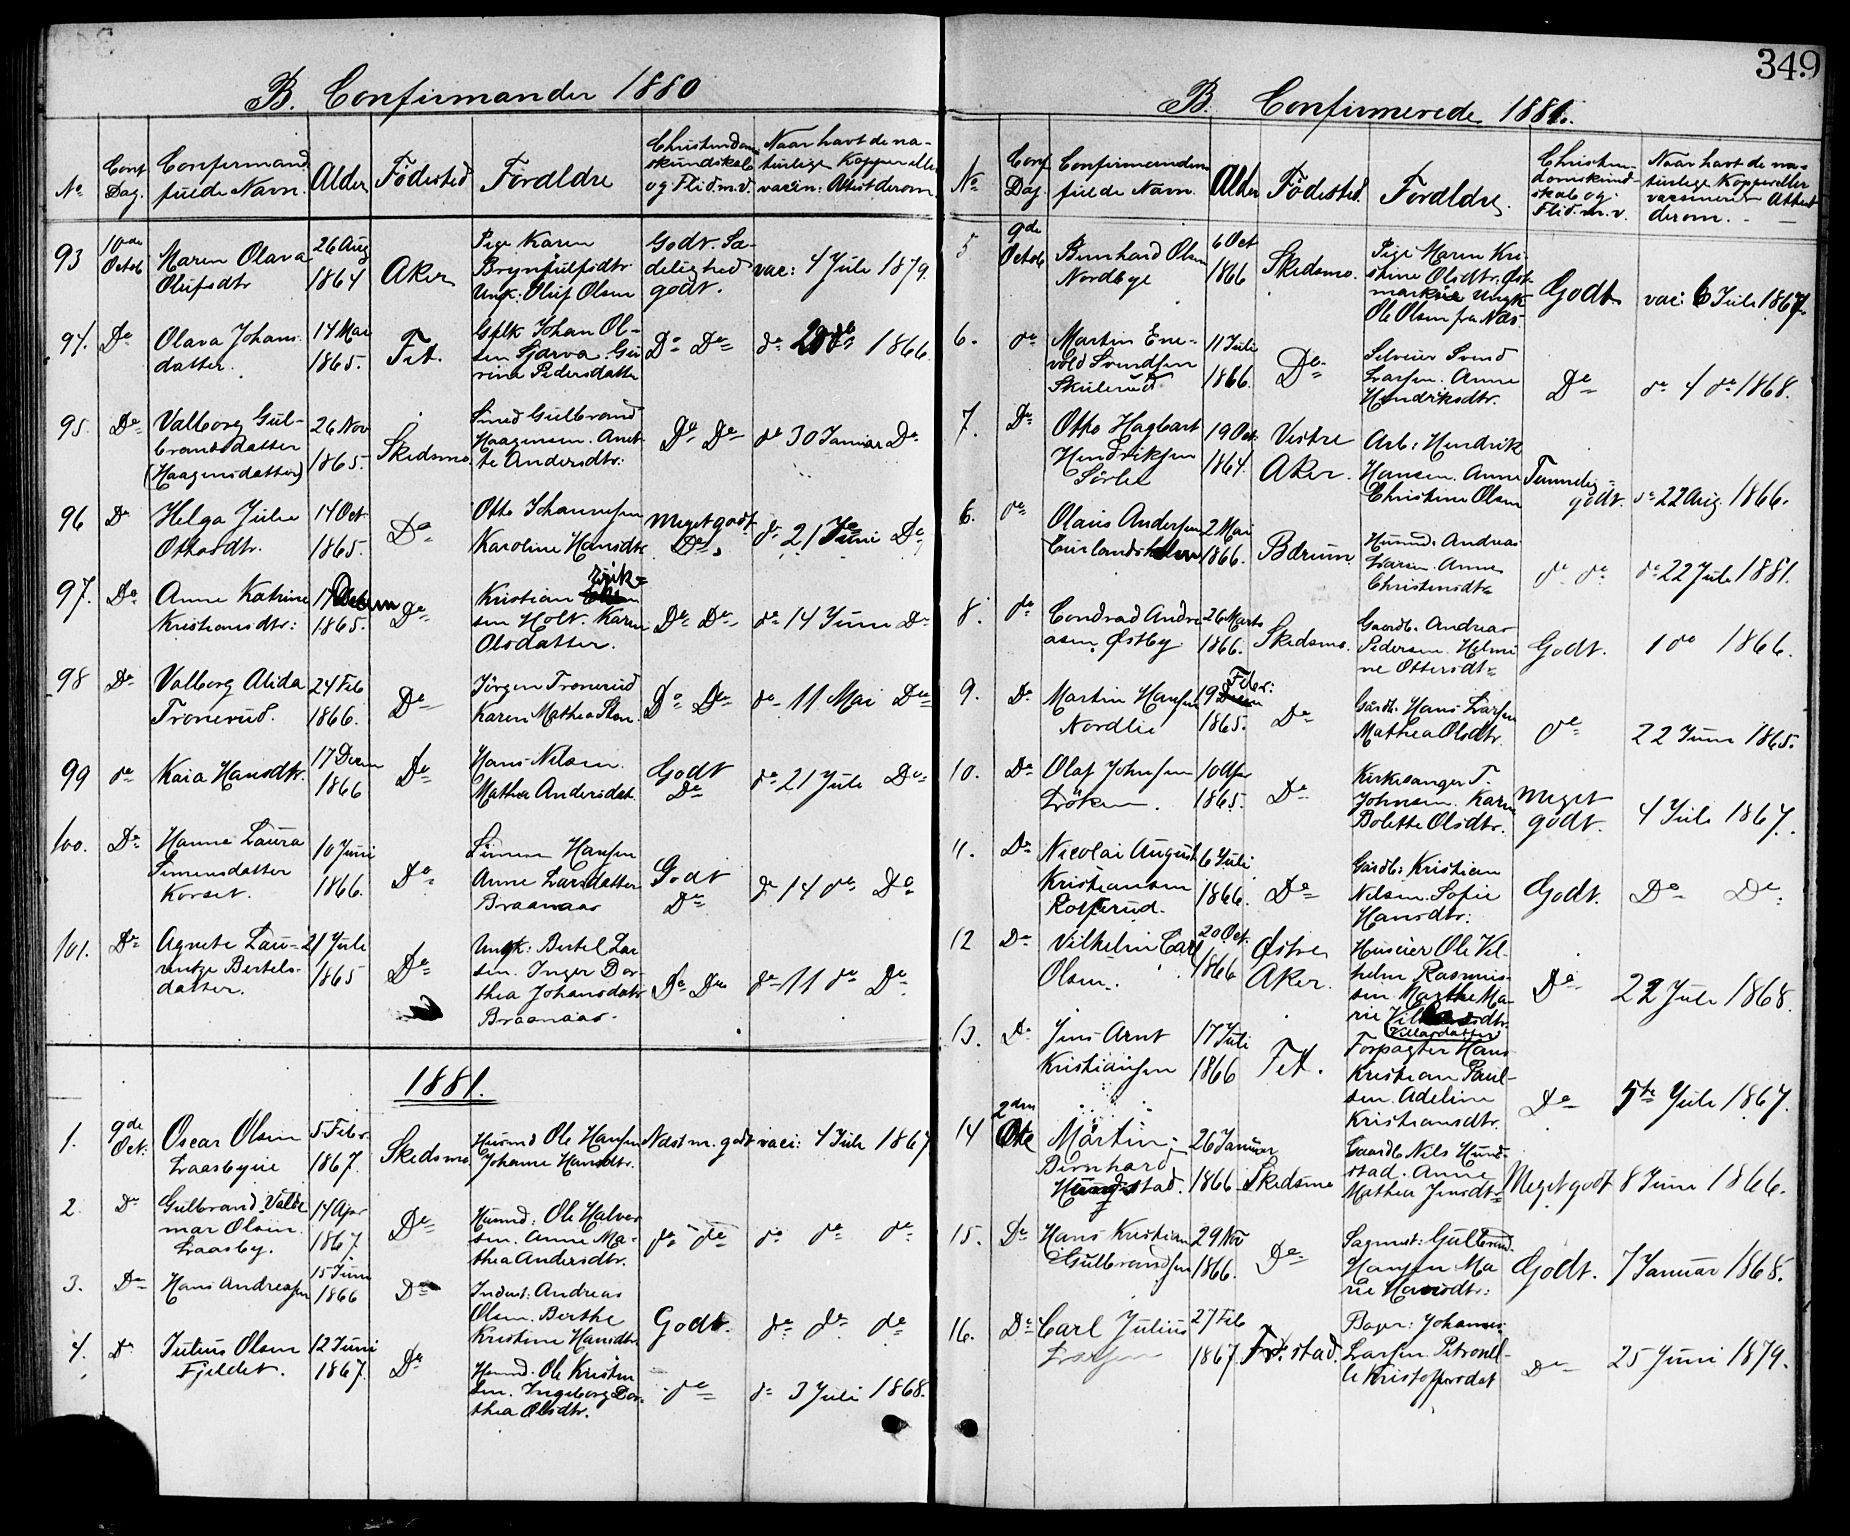 349
B. Confirmander 1880
No
Conf Dag.
Confirmand fulde Navn.
Alder
Födested
Forældre
Christendomskundskab og Flid. m. v.
Naar havt de naturlige Kopper eller vaccin: Attest derom
93 10de Octob Maren Olava 26 Aug Aker Pige Karen Godt. Sa- vac: 4 Juli 1879.
Olufsdtr 1864 Brynfulfsdtr delighed
Ungk: Oluf Olsen godt.
94. Do Olava Johans- 14 Mai Fet. Gflk Johan Ol- Do Do do 1866.
datter. 1865. sen Gu-
rine Pedersdatter
95. Do Valborg Gul- 26 Nov Skedsmo. Smed Gulbrand Do Do do 30 Januar Do
brandsdatter 1865. Haagensen. Anet-
(Haagensdatter) te Andersdtr:
96 Do Helga Julie 14 Oct Do Otto Johannesen Meget godt do 21 Juni Do
Ottosdtr. 1865. Karoline Hansdtr Do
97. Do Anne Katrine 17 Do Kristian Do Do do 14 Juni Do
Kristiansdtr: 1865. sen Holt. Karen
Olsdatter.
98 Do Valborg Alida 24 Feb Do Jörgen Tronerud Do Do do 11 Mai Do
Tronerud. 1866. Karen Mathea
99 do Kaia Hansdtr. 17 Decem Do Hans Nilsen Godt do 21 Juli Do
1866 Mathea Andersdat. Do
100. Do Hanne Laura 10 Juni Do Simen Hansen Godt do 14 do Do
Simensdatter 1866. Anne Larsdatter Do
Korset. Braanaas
101. Do Agnete Lau- 21 Juli Do Ungk: Bertel Lar Do Do do 11 do Do
rentze Bertels- 1865 sen. Inger Dor-
datter. thea Johansdatr
Braanaas.
1881.
1. 9de Oct: Oscar Olsen 5 Febr. Skedsmo Husmd Ole Hansen Næst m. godt vacc: 4 Juli 1867
Laasbyeie 1867. Johanne Hansdtr.
2. Do Gulbrand Valde 14 Apr Do Husmd: Ole Halvor do do do do do
mar Olsen 1867. sen. Anne Ma-
Laasby. thea Andersdtr.
3. Do Hans Andreasen 15 Juni Do Inderst: Andreas Godt. do do do
1866 Olsen. Berthe
Kristine Hansdtr
4. Do Julius Olsen 12 Juni Do Husmd: Ole Kristen do do 3 Juli 1868.
Fjeldet. 1867. sen. Ingeborg Dor-
thea Olsdtr.
B. Confirmerede 1881.
No
Conf Dag
Confirmanden fulde Navn.
Alder
Födested.
Forældre.
Christendomskundskab og Flid. m. v.
Naar havt de naturlige Kopper eller vaccineret Attest derom.
5 9de Octob Bernhard Olsen 6 Oct Skedsmo. Pige Maren Kri- Godt vac: 6 Juli 1867.
Nordbye 1866 stine Olsdtr. Øst-
Ungk
Ole Olsen fra Næs
6. do Martin Ene- 11 Juli Do Selveier Svend Do do 4 do 1868.
vold Svendsen 1866. Larsen. Anne
Skulerud Hendriksdtr.
7. Do Otto Hagbart 19 Oct: Vestre Arb: Hendrik Temmelig
Hendriksen 1864. Aker. Hansen. Anne godt. do 22 Aug. 1866.
Sörlie Christine Olsen
6. do Olaus Andersen 2 Mai Bærum Husmd: Andreas do do do 22 Juli 1881.
1866. Larsen. Anne
Christensdtr
8. do Condrad Andre 26 Marts Skedsmo. Gaardb. Andreas Godt. 1 do 1866.
asen Østby 1866. Pedersen. Helmi
ne Ottersdtr
9. Do Martin Hansen 19 Feber: Do Gårdb. Hans Larsen do 22 Juni 1865.
Nordlie 1865. Mathea Olsdtr.
10. Do Olaf Johnsen 10 Apr Do Kirkesanger T. Meget 4 Juli 1867.
Löken. 1865. Johnsen. Karen godt.
Bolette Olsdtr.
11. Do Nicolai August 6 Juli Do Gårdb: Kristian Godt. Do Do
Kristiansen 1866. Nilsen. Sofie
Rolferud. Hansdtr:
12 Do Vilhelm Carl 20 Oct. Østre Huseier Ole Vil- Do 22 Juli 1868
Olsen. 1866 Aker. helm Rasmus-
sen Marthe Ma
rie
Villasdatter
13. Do Jens Arnt 17 Juli Fet. Forpagter Hans Do 5te Juli 1867.
Kristiansen 1866 Kristian Paul-
sen. Adeline
Kristiansdtr.
14 2den Martin 26 Januar Skedsmo Gaardb Nils Hund- Meget godt 8 Juni 1866.
Bernhard 1866 stad. Anne
Hungstad. Mathea Jensdtr
15. Do Hans Kristian 29 Nov Do Sagmst: Gulbrand Godt. 7 Januar 1868.
Gulbrandsen 1866. Hansen Ma
rie Hansdtr:
16. Do Carl Julius 27 Feb Fr. stad. Bager: Johannes Do 25 Juni 1879.
Larsen 1867. Larsen. Petronel-
le Kristoffersdat